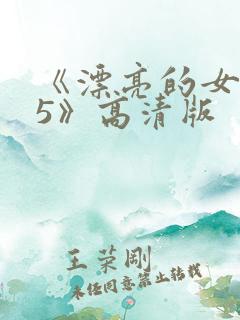 《漂亮的女
5》高清版
王荣刚
未经同意禁止转载